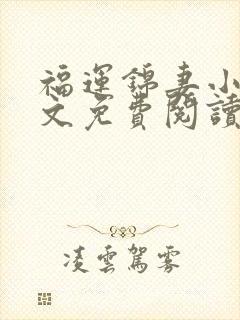 福運錦妻小
文免費閱讀
凌雲駕霧